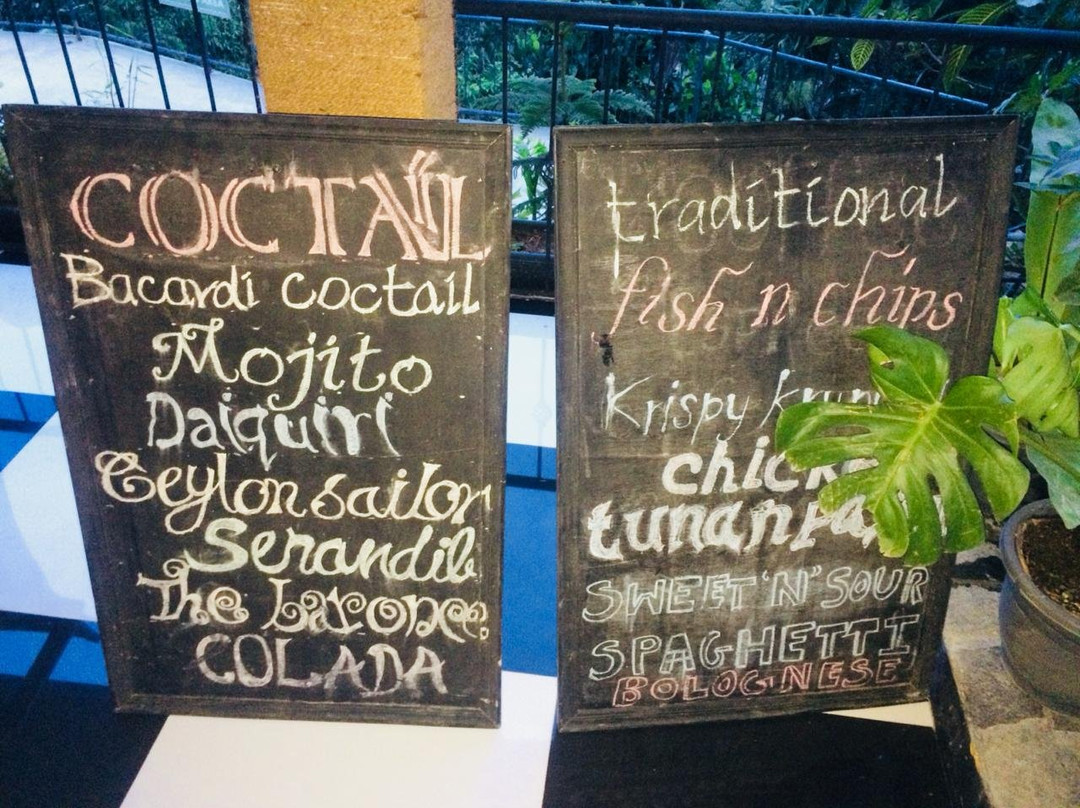 COCTAIL
Bacardi coctail
Mojito
Daiquiri
Ceylon sailor
Serandib
The
COLADA
traditional
fish n chips
Krispy
SWEET 'N' SOUR
SPAGHETTI
BOLOGNESE